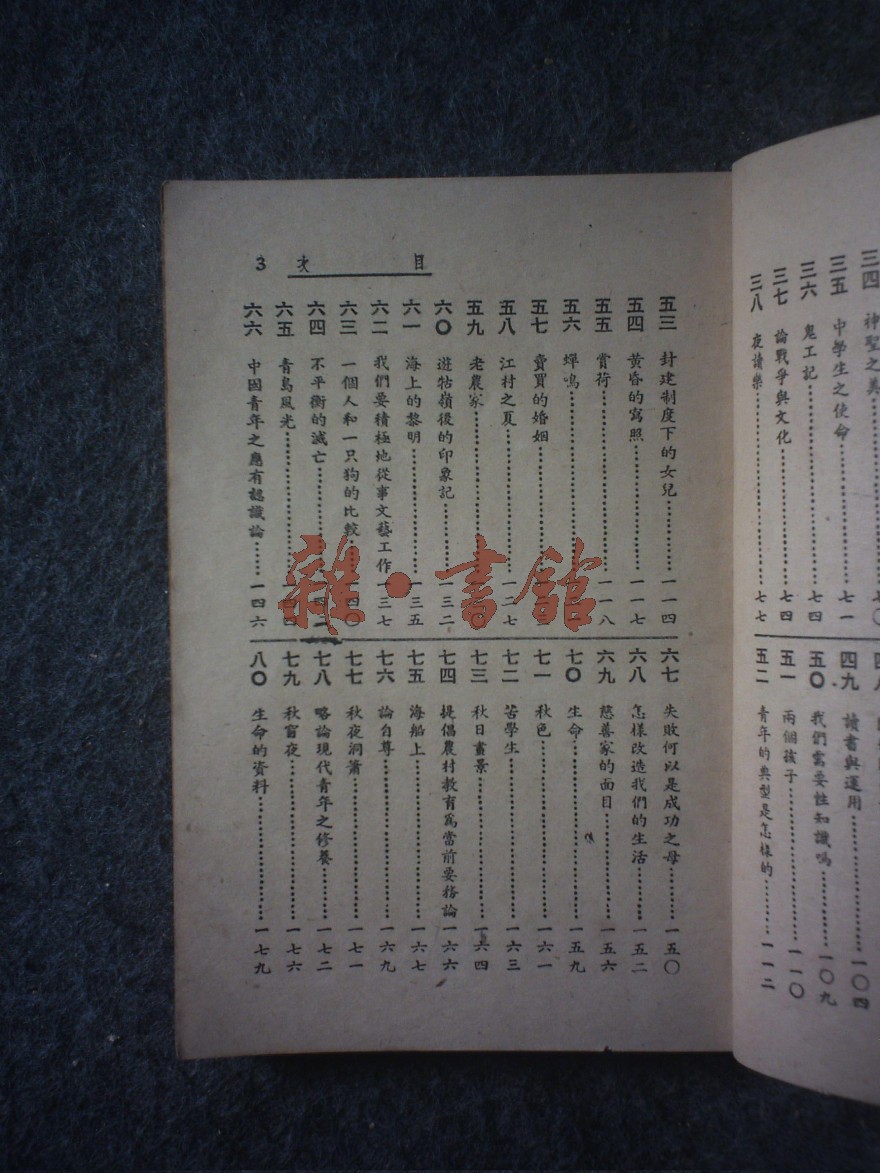 三四 神聖之美……七〇
三五 中學生之使命……七一
三六 鬼工記……七四
三七 論戰爭與文化……七四
三八 夜讀樂……七七
四九 讀書與運用……一〇四
五〇 我們需要性知識嗎……一〇九
五一 兩個孩子……一一〇
五二 青年的典型是怎樣的……一一二
目次 3
五三 封建制度下的女兒……一一四
五四 黃昏的寫照……一一七
五五 賞荷……一一八
五六 蟬鳴……
五七 賣買的婚姻……
五八 江村之夏……一二七
五九 老農家……
六〇 遊牯嶺後的印象記……一三二
六一 海上的黎明……一三五
六二 我們要積極地從事文藝工作 一三七
六三 一個人和一只狗的比較……一四〇
六四 不平衡的滅亡……一四二
六五 青島風光……一四四
六六 中國青年之應有認識論……一四六
六七 失敗何以是成功之母……一五〇
六八 怎樣改造我們的生活……一五二
六九 慈善家的面目……一五六
七〇 生命……一五九
七一 秋色……一六一
七二 苦學生……一六三
七三 秋日畫景……一六四
七四 提倡農村教育為當前要務論 一六六
七五 海船上……一六七
七六 論自尊……一六九
七七 秋夜洞簫……一七一
七八 略論現代青年之修養……一七二
七九 秋窗夜……一七六
八〇 生命的资料……一七九
雜·書館